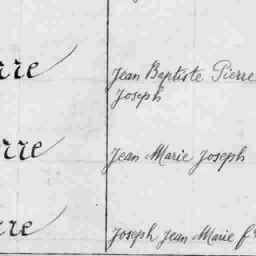 rre
Jean Baptiste Pierre
Joseph
rre
Jean Marie Joseph
rre
Joseph Jean Marie